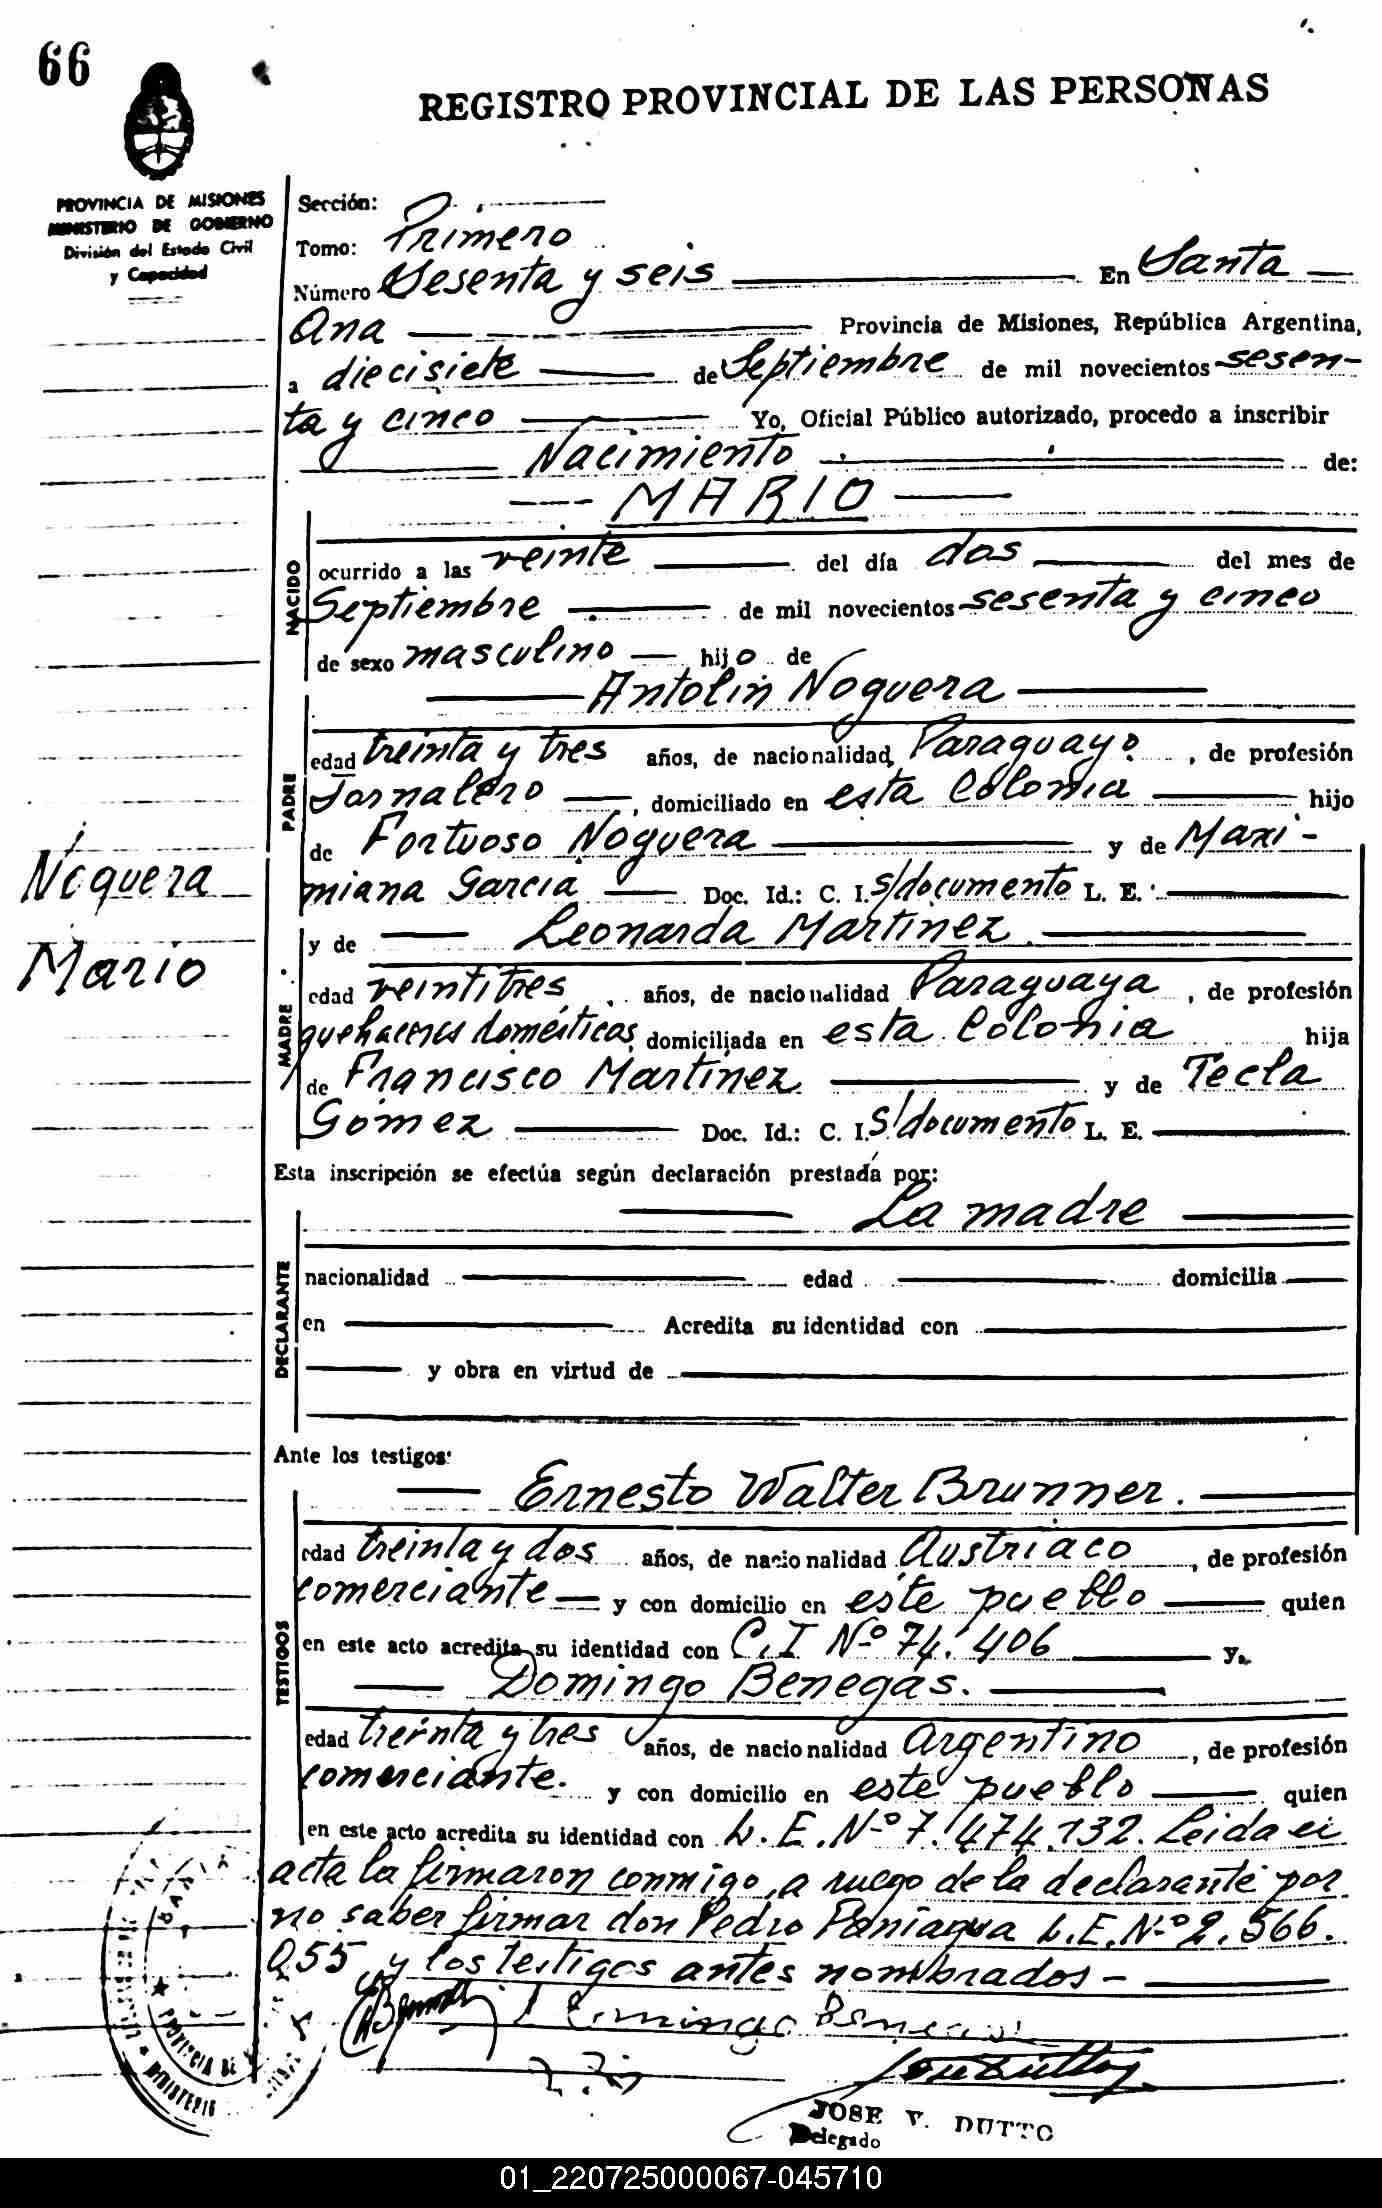 66
REGISTRO PROVINCIAL DE LAS PERSONAS
PROVINCIA DE MISIONES
MINISTERIO DE GOBIERNO
División del Estado Civil
y Capacidad
Sección:
Tomo: Primero
Número Sesenta y seis En Santa
Ana Provincia de Misiones, República Argentina,
a diecisiete de Septiembre de mil novecientos sesen-
ta y cinco Yo, Oficial Público autorizado, procedo a inscribir
Nacimiento de:
MARIO
NACIDO
ocurrido a las veinte del día dos del mes de
Septiembre de mil novecientos sesenta y cinco
de sexo masculino hijo de
Antolin Noguera
PADRE
edad treinta y tres años, de nacionalidad Paraguayo, de profesión
Jornalero, domiciliado en esta Colonia hijo
de Fortuoso Noguera y de Maxi-
miana Garcia Doc. Id.: C. I. S/documento L. E.
Noguera
Mario
y de Leonarda Martinez
MADRE
edad veintitres años, de nacionalidad Paraguaya, de profesión
quehaceres domésticos domiciliada en esta Colonia hija
de Francisco Martinez y de Tecla
Gómez Doc. Id.: C. I. S/documento L. E.
Esta inscripción se efectúa según declaración prestada por:
La madre
DECLARANTE
nacionalidad edad domicilia
en Acredita su identidad con
y obra en virtud de
Ante los testigos:
Ernesto Walter Brunner.
TESTIGOS
edad treinta y dos años, de nacionalidad Austriaco, de profesión
comerciante y con domicilio en este pueblo quien
en este acto acredita su identidad con C.I Nº 74.406 y
Domingo Benegas.
edad treinta y tres años, de nacionalidad Argentino, de profesión
comerciante. y con domicilio en este pueblo quien
en este acto acredita su identidad con L.E.Nº 7.474.132. Leida el
acta la firmaron conmigo, a ruego de la declarante por
no saber firmar don Pedro Paniagua L.E.Nº 2.566.
055 y los testigos antes nombrados -
JOSE V. DUTTO
Delegado
PROVINCIA DE
MINISTERIO
01_220725000067-045710